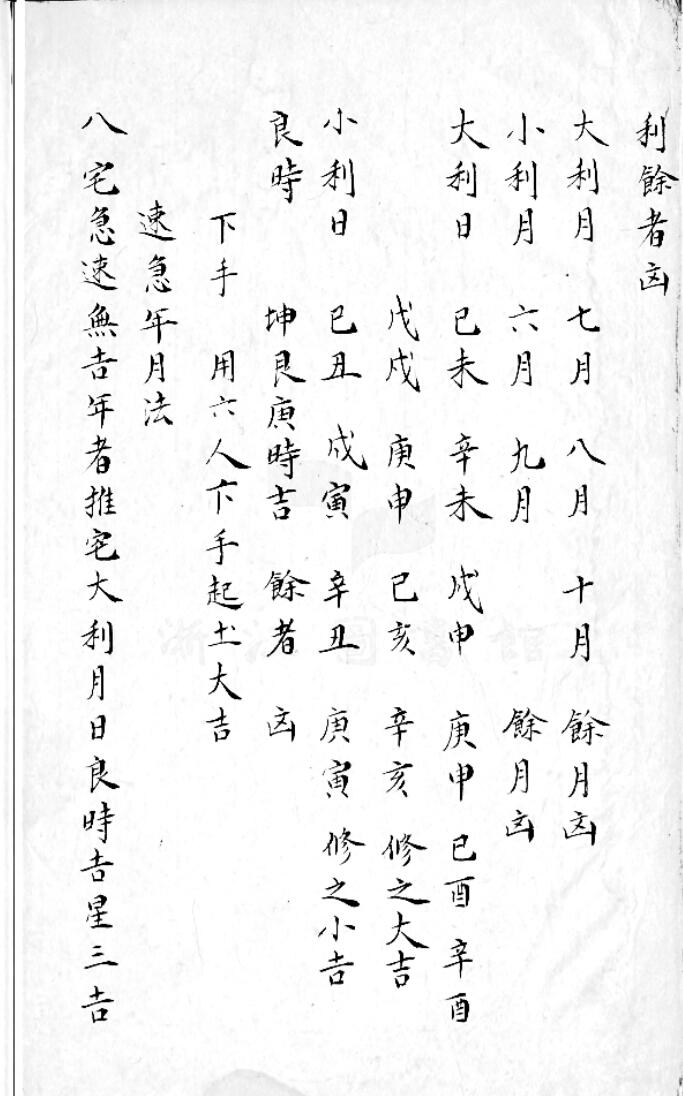 利餘者凶
大利月 七月 八月 十月 餘月凶
小利月 六月 九月 餘月凶
大利日 已未 辛未 戊申 庚申 已酉 辛酉
戊戌 庚申 已亥 辛亥 修之大吉
小利日 已丑 戊寅 辛丑 庚寅 修之小吉
良時 坤艮庚時吉 餘者凶
下手 用六人下手起土大吉
速急年月法
八宅急速無吉年者推宅大利月日良時吉星三吉
浙江圖書館